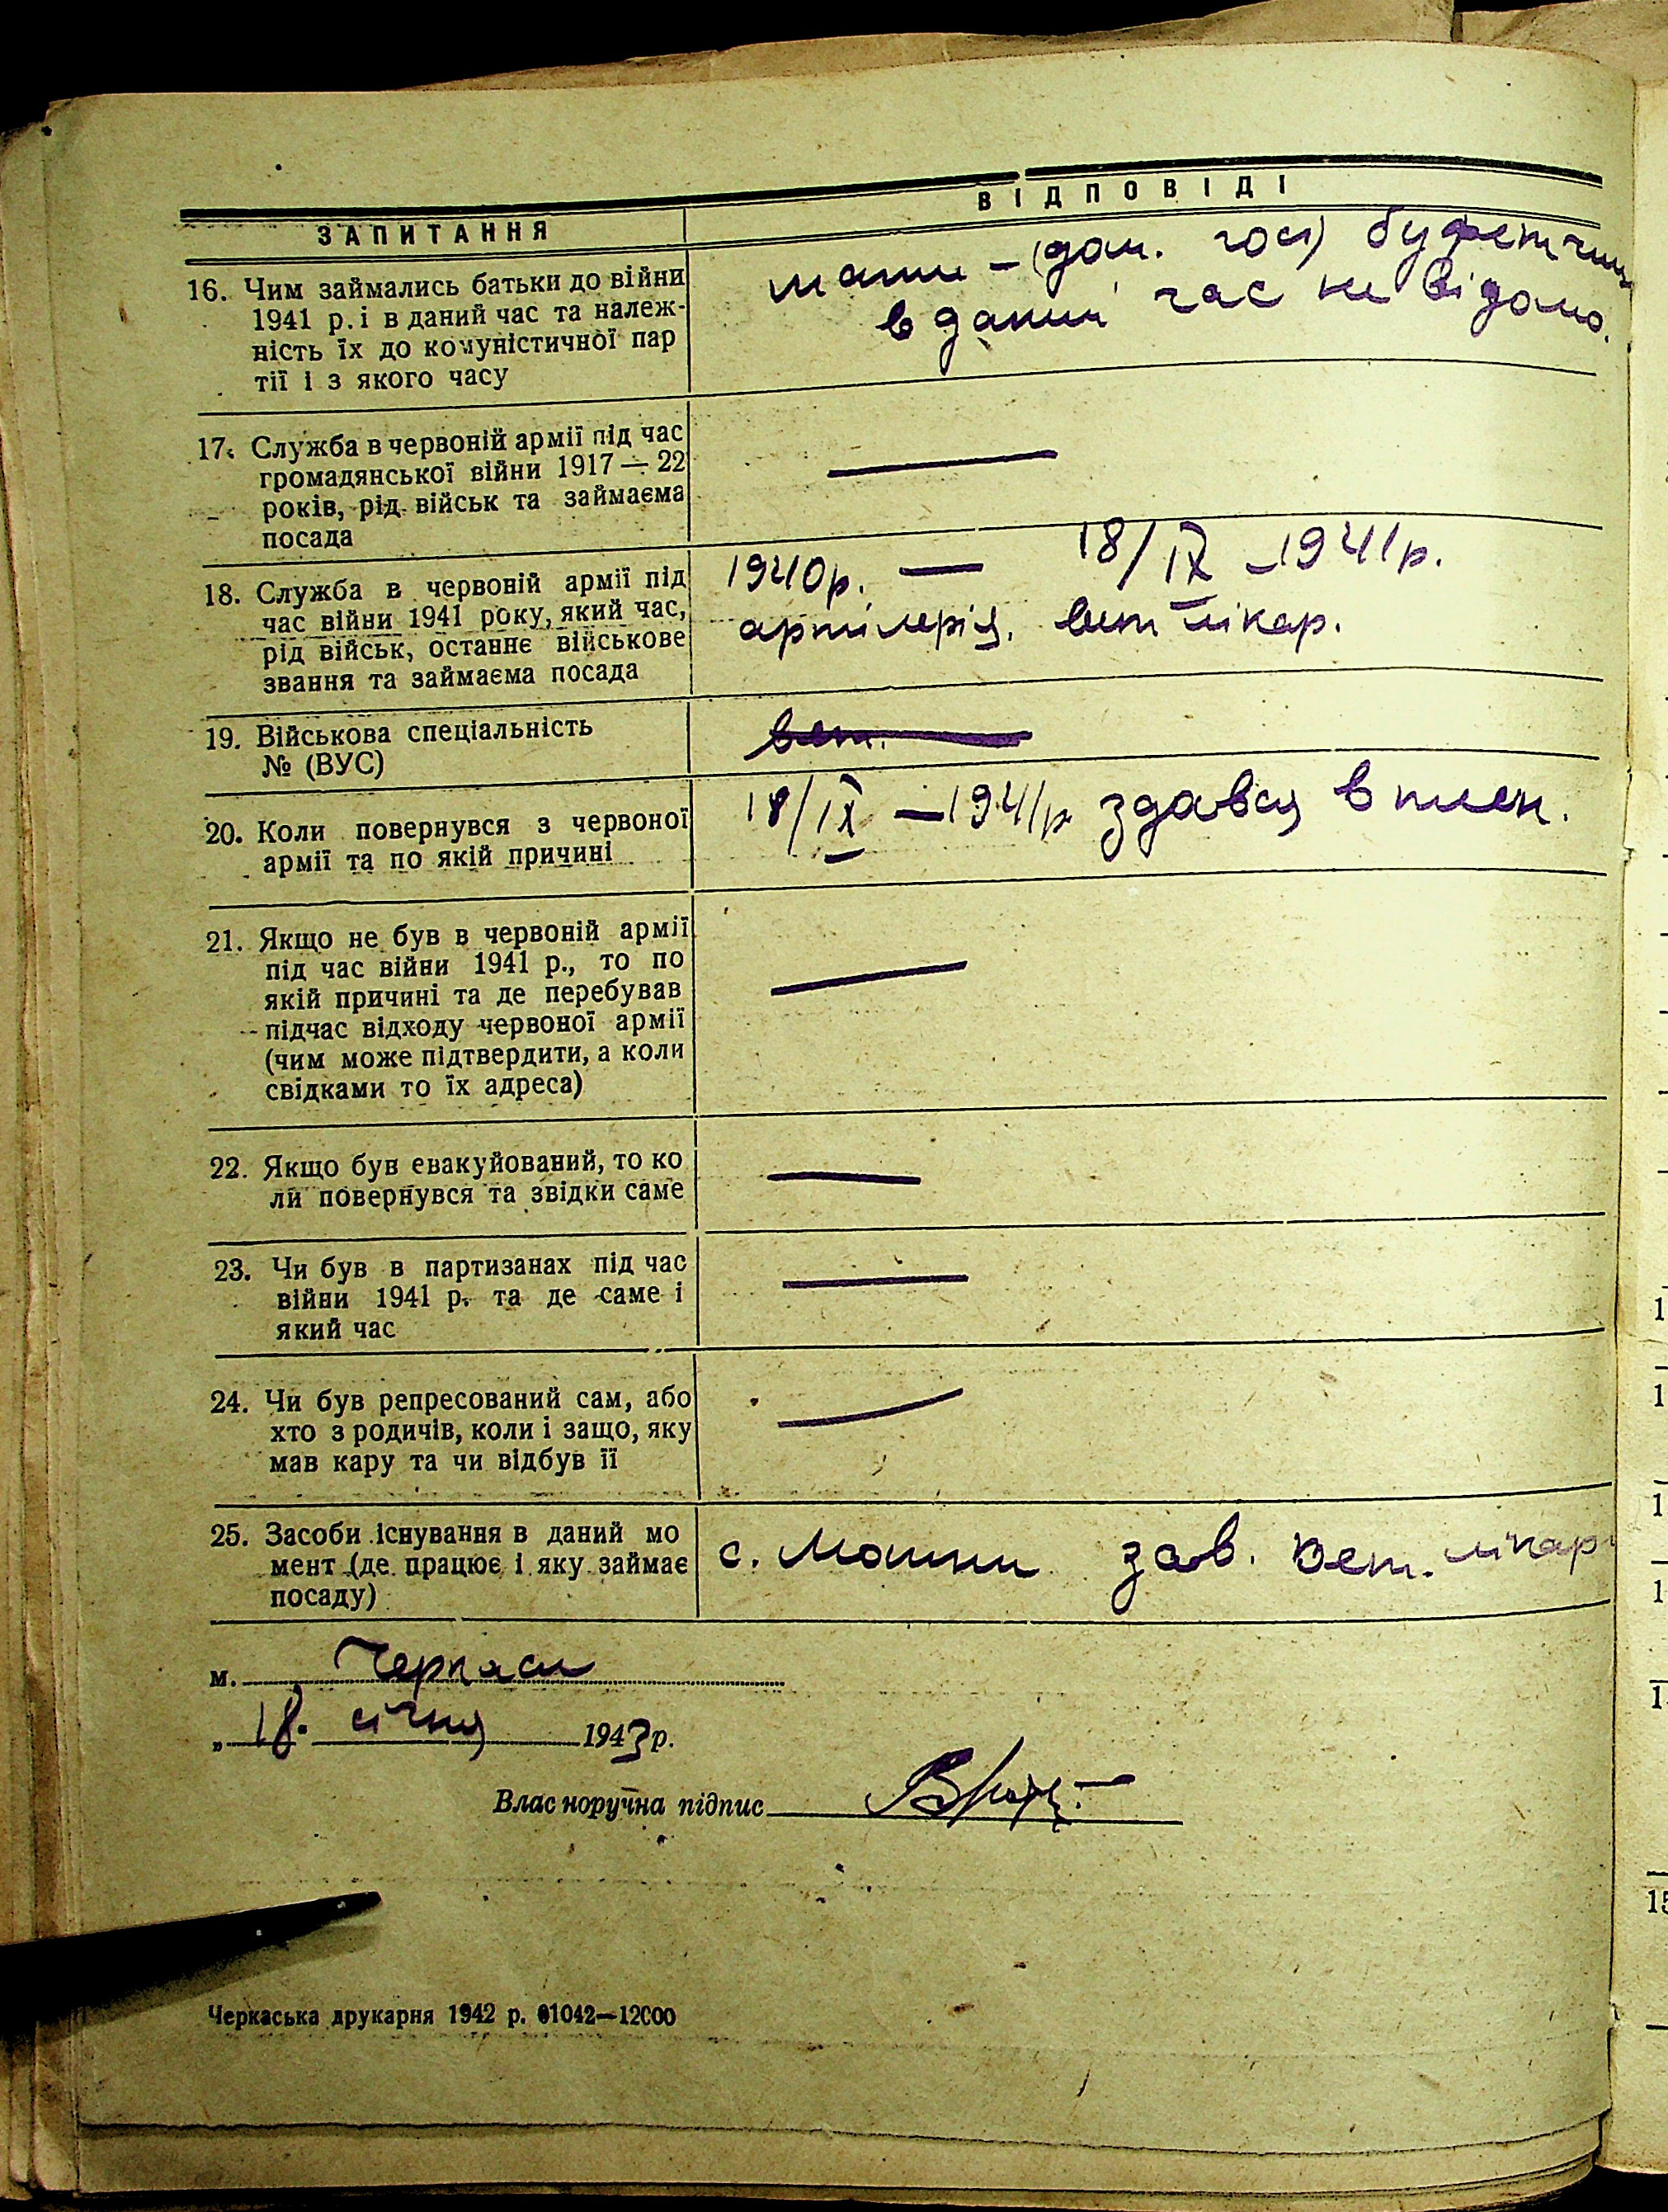 ВІДПОВІДІ
ЗАПИТАННЯ
16. Чим займались батьки до війни
1941 р. і в даний час та належ-
ність їх до комуністичної пар
тії і з якого часу
мати – (дом. гос)
в даний час не відомо.
17. Служба в червоній армії під час
громадянської війни 1917 — 22
років, рід військ та займаєма
посада
—
18. Служба в червоній армії під
час війни 1941 року, який час,
рід військ, останнє військове
звання та займаєма посада
1940р. — 18/IX – 1941р.
артілерія. вет лікар.
19. Військова спеціальність
№ (ВУС)
вет.
20. Коли повернувся з червоної
армії та по якій причині
18/IX – 1941р здався в плен.
21. Якщо не був в червоній армії
під час війни 1941 р., то по
якій причині та де перебував
підчас відходу червоної армії
(чим може підтвердити, а коли
свідками то їх адреса)
—
22. Якщо був евакуйований, то ко
ли повернувся та звідки саме
—
23. Чи був в партизанах під час
війни 1941 р. та де саме і
який час
—
24. Чи був репресований сам, або
хто з родичів, коли і защо, яку
мав кару та чи відбув її
—
25. Засоби існування в даний мо
мент (де працює і яку займає
посаду)
с. Мошни зав. вет. лікар
м. Черкаси
„ 18. січня 1943 р.
Власноручна підпис
Черкаська друкарня 1942 р. 01042—12000